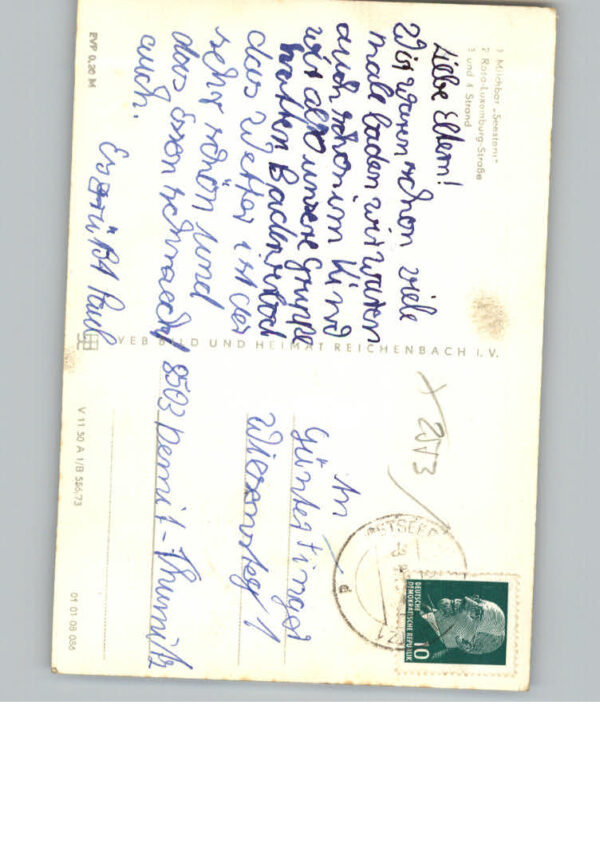 1 Milchbar „Seestern"
2 Rosa-Luxemburg-Straße
3 und 4 Strand
Liebe Eltern!
Wir waren schon viele
male baden wir waren
auch schon im Kino
wir also unsere Gruppe
hatten Badeverbot
das Wetter ist der
sehr schön und
das Essen schmeckt
auch.
Es grüßt Paul
EVP 0,20 M
VEB BILD UND HEIMAT REICHENBACH I. V.
V 11 50 A 1/B 556/73
01 01 08 086
2513
An
Günter
Wiesenweg 1
8503 Demitz-Thumitz
d
DEUTSCHE
DEMOKRATISCHE REPUBLIK
10